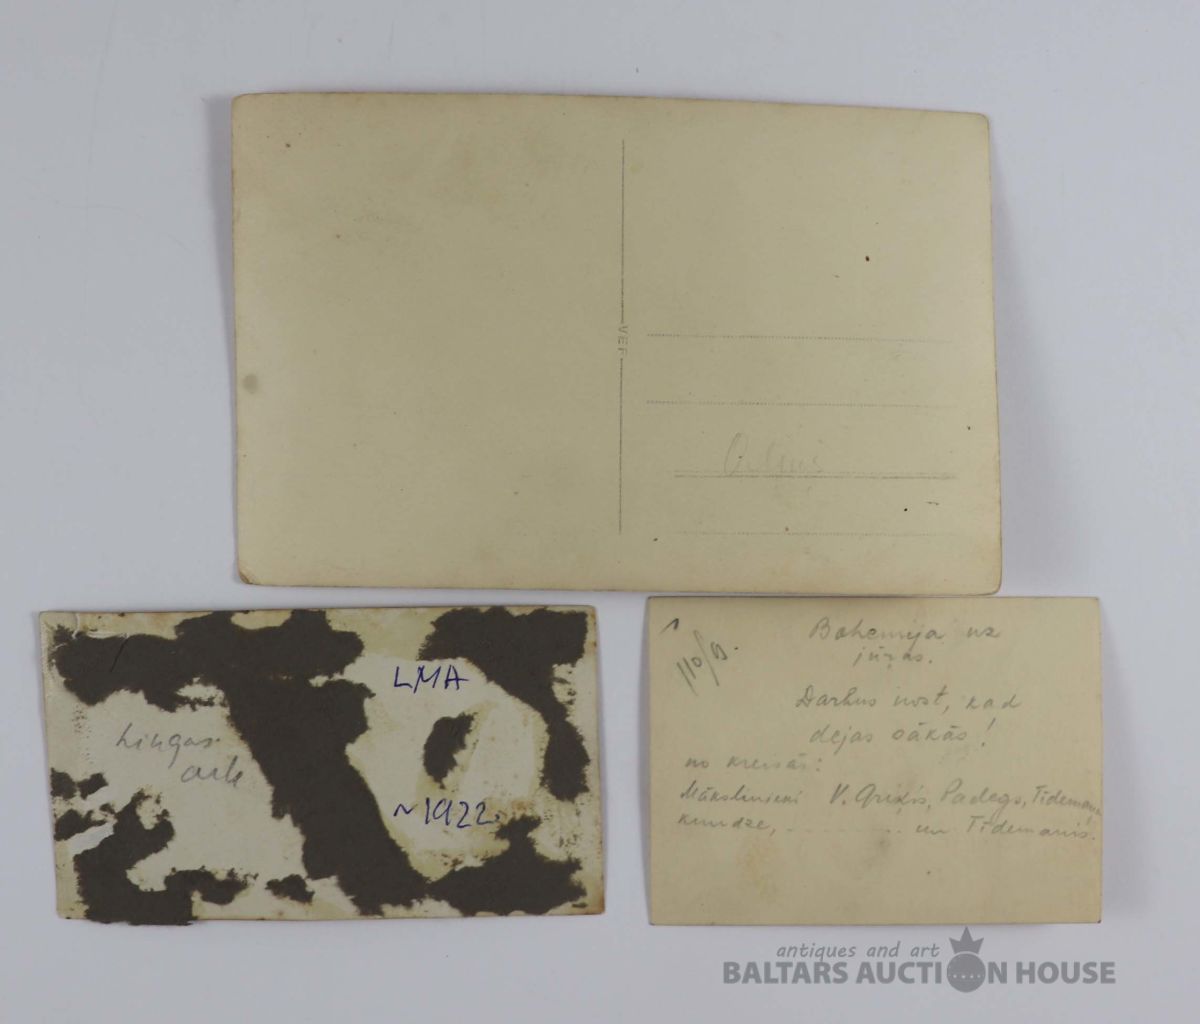 VEF
LMA
~1922.
110/
Bohemija uz
jūŗas.
Darbus nost, kad
dejas sākās!
no kreisās:
Mākslinieki V. Griķis, Padegs, Tīdemaņa
kundze, ............ un Tīdemanis.
antiques and art
BALTARS AUCTION HOUSE